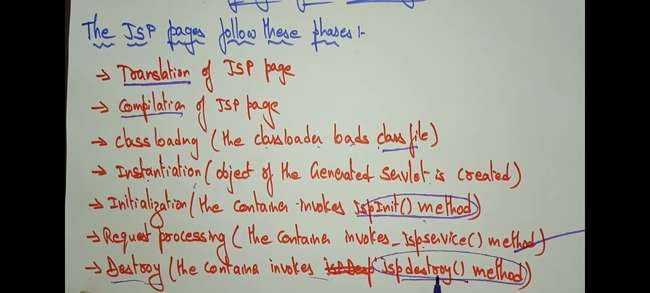 The JSP pages follow these phases:-
→ Translation of JSP page
→ Compilation of JSP page
→ Classloading (the classloader loads class file)
→ Instantiation (object of the Generated Servlet is created)
→ Initialization (the container invokes jspInit() method)
→ Request processing (the container invokes _jspservice() method)
→ Destroy (the container invokes jspdestroy() method)